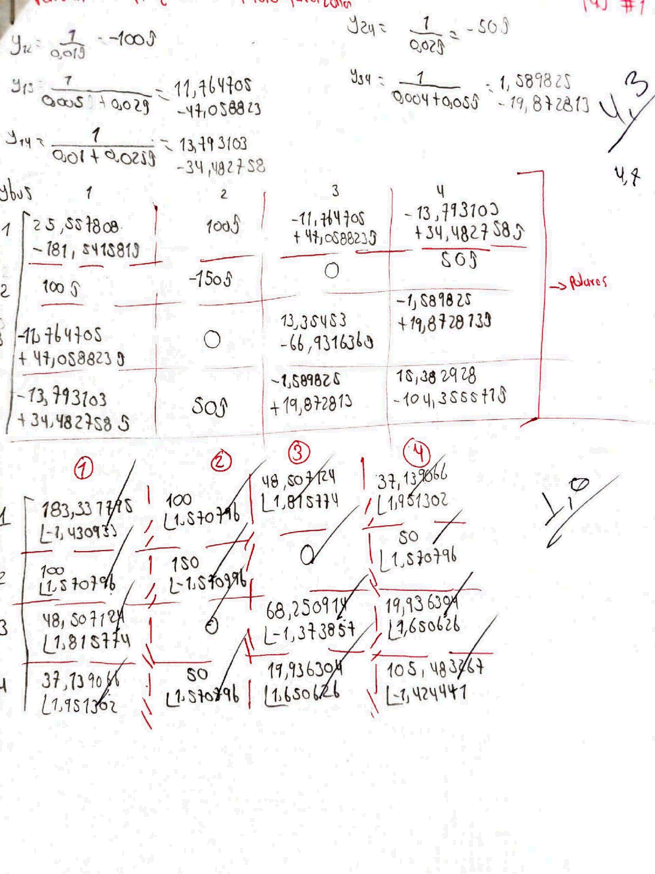 y12 = 1/0,01j = -100j
y24 = 1/0,02j = -50j
y13 = 1/(0,005 + 0,02j) = 11,764705 -47,058823
y34 = 1/(0,004+0,05j) = 1,589825 -19,872813
4,3
y14 = 1/(0,01+0,025j) = 13,793103 -34,482758
4,7
Ybus 1 2 3 4
1 25,557808 100j -11,764705 -13,793103
-181,541581j +47,058823j +34,482758j
2 100j -150j 0 50j
3 -11,764705 0 13,35453 -1,589825
+47,058823j -66,931636j +19,872813j
→ Polares
-13,793103 50j -1,589825 15,382928
+34,482758j +19,872813 -104,355571j
1 2 3 4
1 183,337795 100 48,507124 37,139066
∠-1,430933 ∠1,570796 ∠1,815774 ∠1,951302
1,0
2 100 150 0 50
∠1,570796 ∠-1,570796 ∠1,570796
3 48,507124 0 68,250914 19,936304
∠1,815774 ∠-1,373857 ∠1,650626
4 37,139066 50 19,936304 105,483267
∠1,951302 ∠1,570796 ∠1,650626 ∠-1,424441